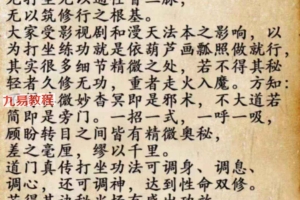 无以筑修行之根基。
大家受影视剧和漫天法本之影响，以
为打坐练功就是依葫芦画瓢照做就行，
其实很多细节精微之处，若不得其秘
轻者久修无功，重者走火入魔。方知：
微妙杳冥即是邪术　不大道若
简即是旁门。一招一式，一呼一吸，
顾盼转目之间皆有精微奥秘，
差之毫厘，缪以千里。
道门真传打坐功法可调身、调息、
调心，还可调神，达到性命双修。
九易教程